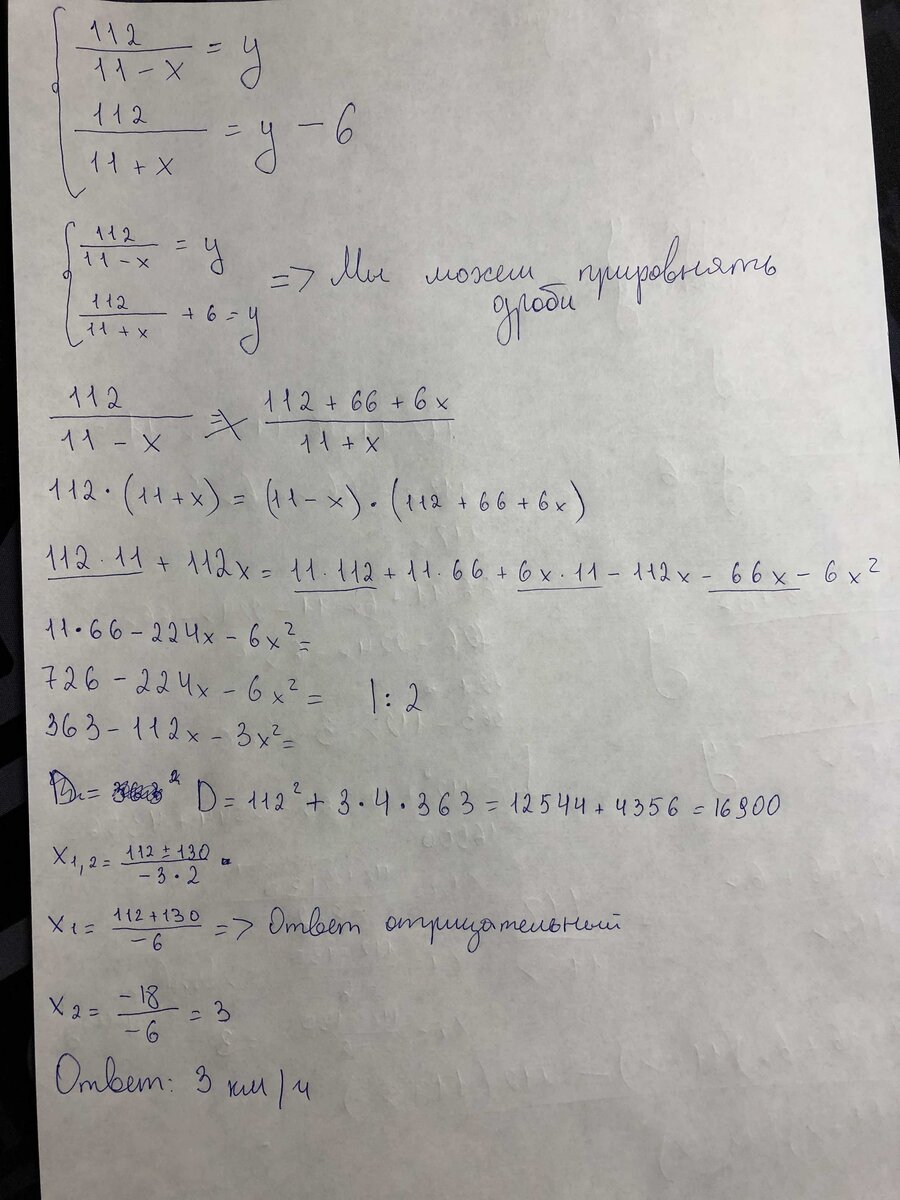 112/(11 - x) = y
112/(11 + x) = y - 6
112/(11 - x) = y
112/(11 + x) + 6 = y => Мы можем прировнять дроби
112/(11 - x) = (112 + 66 + 6x)/(11 + x)
112 · (11 + x) = (11 - x) · (112 + 66 + 6x)
112 · 11 + 112x = 11 · 112 + 11 · 66 + 6x · 11 - 112x - 66x - 6x²
11 · 66 - 224x - 6x² =
726 - 224x - 6x² = |: 2
363 - 112x - 3x² =
D = 112² + 3 · 4 · 363 = 12544 + 4356 = 16900
x1,2 = (112 ± 130)/(-3 · 2)
x1 = (112 + 130)/(-6) => Ответ отрицательный
x2 = (-18)/(-6) = 3
Ответ: 3 км/ч